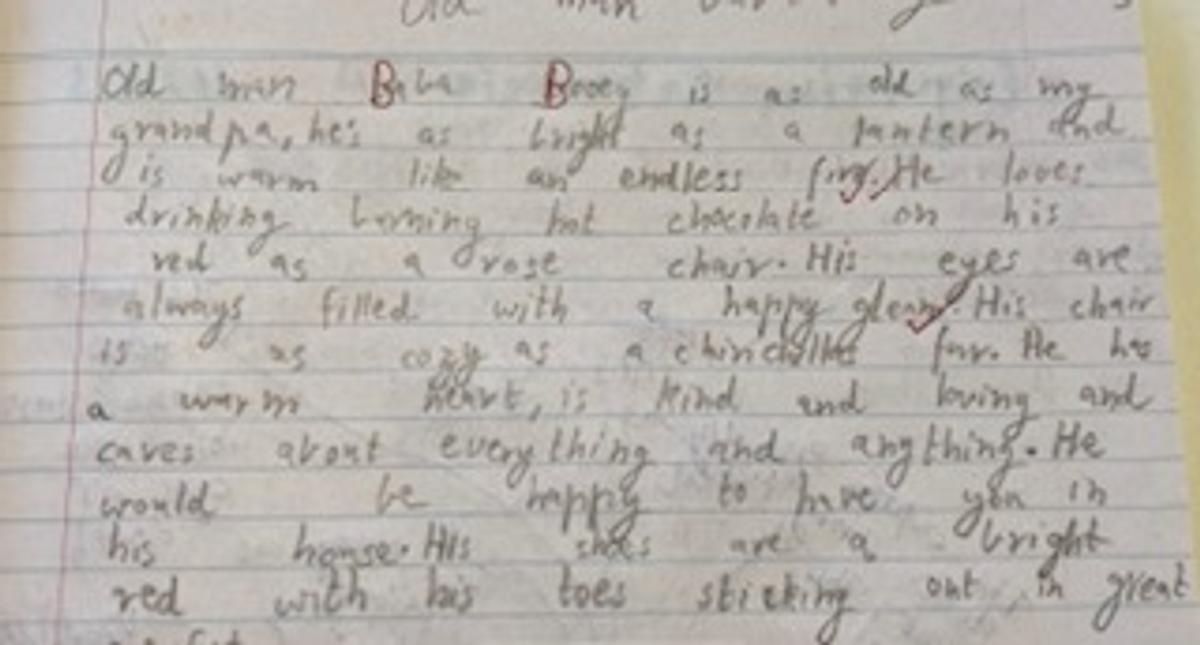 Old man
Old man Baba Booey is as old as my
grandpa, he's as bright as a lantern and
is warm like an endless fire. He loves
drinking burning hot chocolate on his
red as a rose chair. His eyes are
always filled with a happy gleam. His chair
is as cozy as a chinchillas fur. He has
a warm heart, is kind and loving and
cares about everything and anything. He
would be happy to have you in
his house. His shoes are a bright
red with his toes sticking out, in great